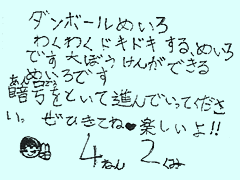 ダンボールめいろ
わくわくドキドキする、めいろ
です 大ぼうけんができる
めいろです
あんごう
暗号をといて進んでいってくださ
い。 ぜひきてね♥楽しいよ!!
4ねん 2くみ